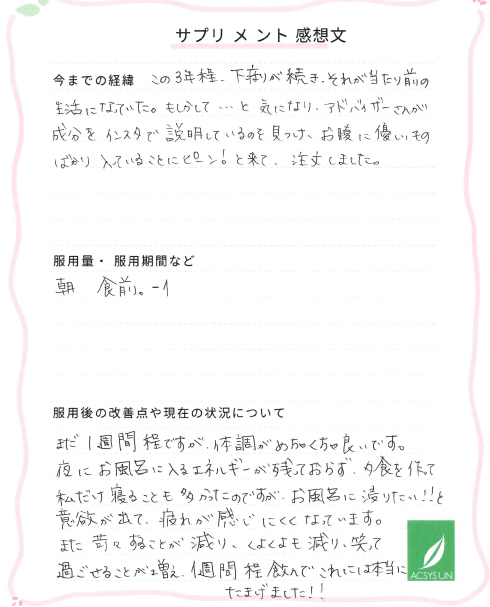 サプリメント感想文
今までの経緯 この3年程、下痢が続き、それが当たり前の
生活になっていた。もしかして…と気になり、アドバイザーさんが
成分をインスタで説明しているのを見つけ、お腹に優しいもの
ばかり入っていることにピーン!と来て、注文しました。
服用量・服用期間など
朝 食前。-1
服用後の改善点や現在の状況について
まだ1週間程ですが、体調がめちゃくちゃ良いです。
夜にお風呂に入るエネルギーが残っておらず、夕食を作って
私だけ寝ることも多かったのですが、お風呂に浸りたい!!と
意欲が出て、疲れが感じにくくなっています。
また苛々することが減り、くよくよも減り、笑って
過ごせることが増え、1週間程飲んでこれには本当に
たまげました!!
ACSYSUN